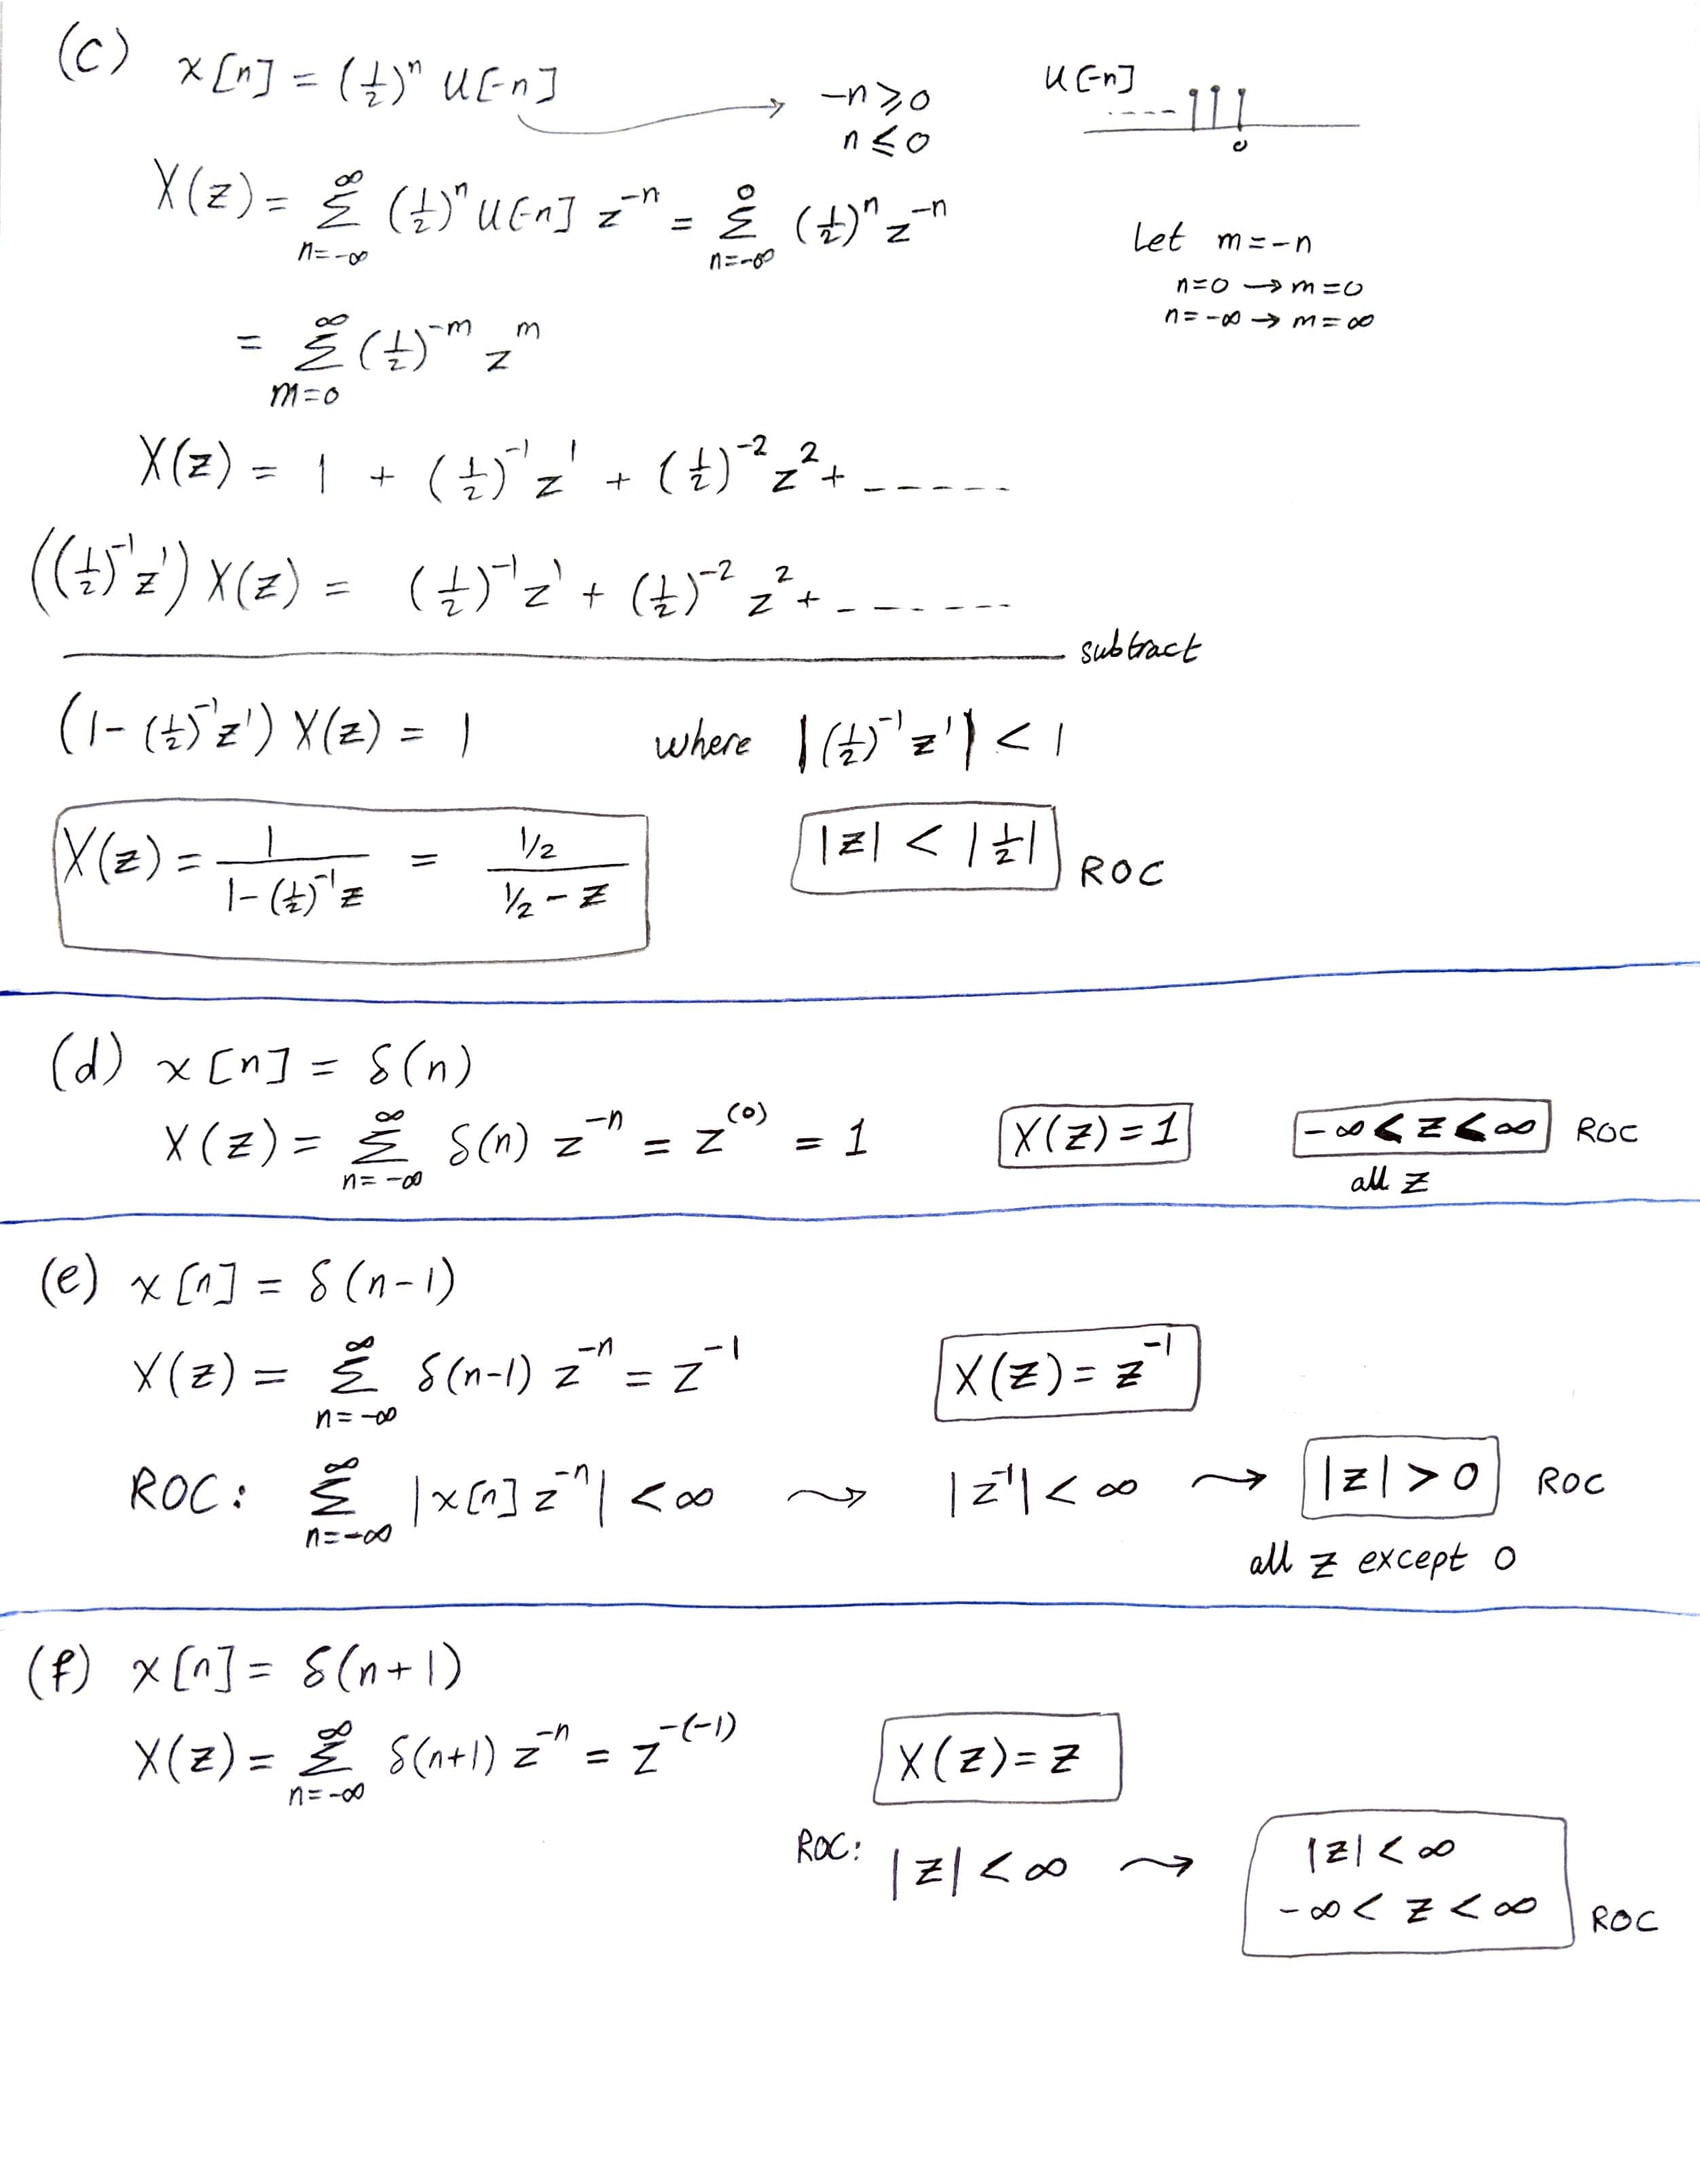 (c) x[n] = (1/2)ⁿ u[-n] → -n ≥ 0 u[-n]
n ≤ 0 0
X(z) = Σ_{n=-∞}^{∞} (1/2)ⁿ u[-n] z⁻ⁿ = Σ_{n=-∞}^{0} (1/2)ⁿ z⁻ⁿ
Let m = -n
n=0 → m=0
n=-∞ → m=∞
= Σ_{m=0}^{∞} (1/2)^{-m} z^m
X(z) = 1 + (1/2)⁻¹ z¹ + (1/2)⁻² z² + ------
((1/2)⁻¹ z¹) X(z) = (1/2)⁻¹ z¹ + (1/2)⁻² z² + -------
subtract
(1 - (1/2)⁻¹ z¹) X(z) = 1 where |(1/2)⁻¹ z¹| < 1
X(z) = 1/(1 - (1/2)⁻¹ z) = (1/2)/(1/2 - z) |z| < |1/2| ROC
(d) x[n] = δ(n)
X(z) = Σ_{n=-∞}^{∞} δ(n) z⁻ⁿ = z^{(0)} = 1 X(z) = 1 -∞ < z < ∞ ROC
all z
(e) x[n] = δ(n-1)
X(z) = Σ_{n=-∞}^{∞} δ(n-1) z⁻ⁿ = z⁻¹ X(z) = z⁻¹
ROC: Σ_{n=-∞}^{∞} |x[n] z⁻ⁿ| < ∞ ⇝ |z⁻¹| < ∞ ⇝ |z| > 0 ROC
all z except 0
(f) x[n] = δ(n+1)
X(z) = Σ_{n=-∞}^{∞} δ(n+1) z⁻ⁿ = z^{-(-1)} X(z) = z
ROC: |z| < ∞ ⇝ |z| < ∞
-∞ < z < ∞ ROC